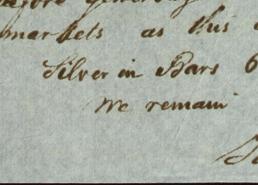 markets as this
Silver in Bars 6
we remain